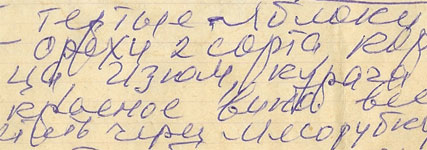 - тертые яблоки
- орехи 2 сорта кор
ца изюм, курага
красное вино все
чить через мясорубку